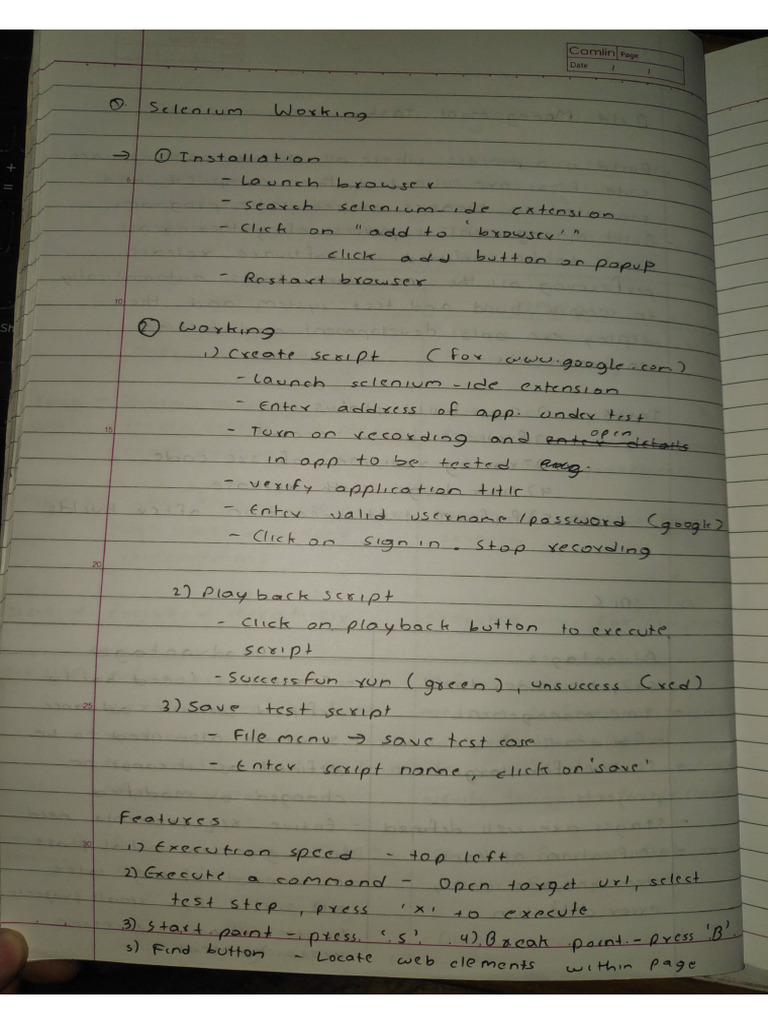 Camlin Page
Date / /
Selenium Working
→ ① Installation
- Launch browser
- search selenium-ide extension
- Click on "add to 'browser'"
click add button on popup
- Restart browser
② Working
1) Create script (for www.google.com)
- Launch selenium-ide extension
- Enter address of app. under test
- Turn on recording and enter details open
in app to be tested
- verify application title
- Enter valid username/password (google)
- Click on sign in. Stop recording
2) Playback script
- Click on playback button to execute
script
- Successfun run (green), unsuccess (red)
3) Save test script
- File menu → save test case
- Enter script name, click on 'save'
Features
1) Execution speed - top left
2) Execute a command - Open target url, select
test step, press 'x' to execute
3) Start point - press 'S'. 4) Break point - press 'B'.
5) Find button - Locate web elements within page
5
10
15
20
25
30